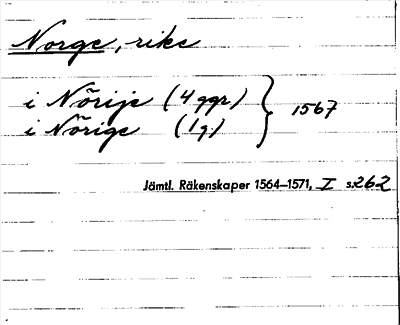 Norge, rike
i Nõrije (4 ggr) } 1567
i Nõrige (1 g.)
Jämtl. Räkenskaper 1564–1571, I s.262